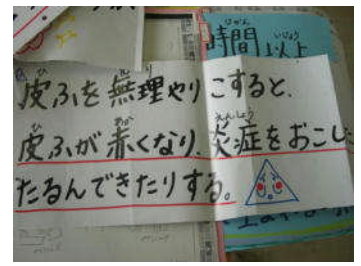 時間以上
皮ふを無理やりこすると、
皮ふが赤くなり、炎症をおこし
たるんできたりする。